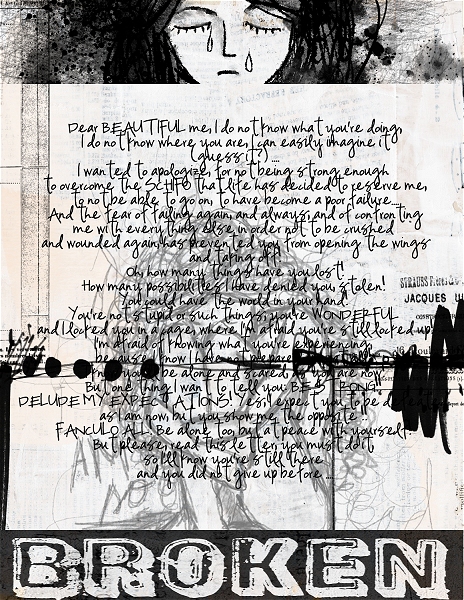 Dear BEAUTIFUL me, I do not know what you're doing,
I do not know where you are, I can easily imagine it
(guess it?) ....
I wanted to apologize, for not being strong enough
to overcome the SCHIFO that life has decided to reserve me,
to not be able to go on, to have become a poor failure...
And the fear of failing again and always, and of confronting
me with everything else in order not to be crushed
and wounded again has prevented you from opening the wings
and taking off!!
Oh, how many things have you lost!
How many possibilities I have denied you, stolen!
You could have the world in your hand!
You're not stupid or such things, you're WONDERFUL
and I locked you in a cage, where I'm afraid you're still locked up.
I'm afraid of knowing what you're experiencing,
because I know I have not prepared
you be alone and scared, as you are now
But one thing I want to tell you: BE STRONG!!
DELUDE MY EXPECTATIONS! Yes, I expect you to be
as I am now, but you show me the opposite!!
FANCULO ALL! Be alone too, but at peace with yourself.
But please, read this letter, you must do it,
so I'll know you're still there
and you did not give up before ...
STRAUSS
JACQUES
BROKEN